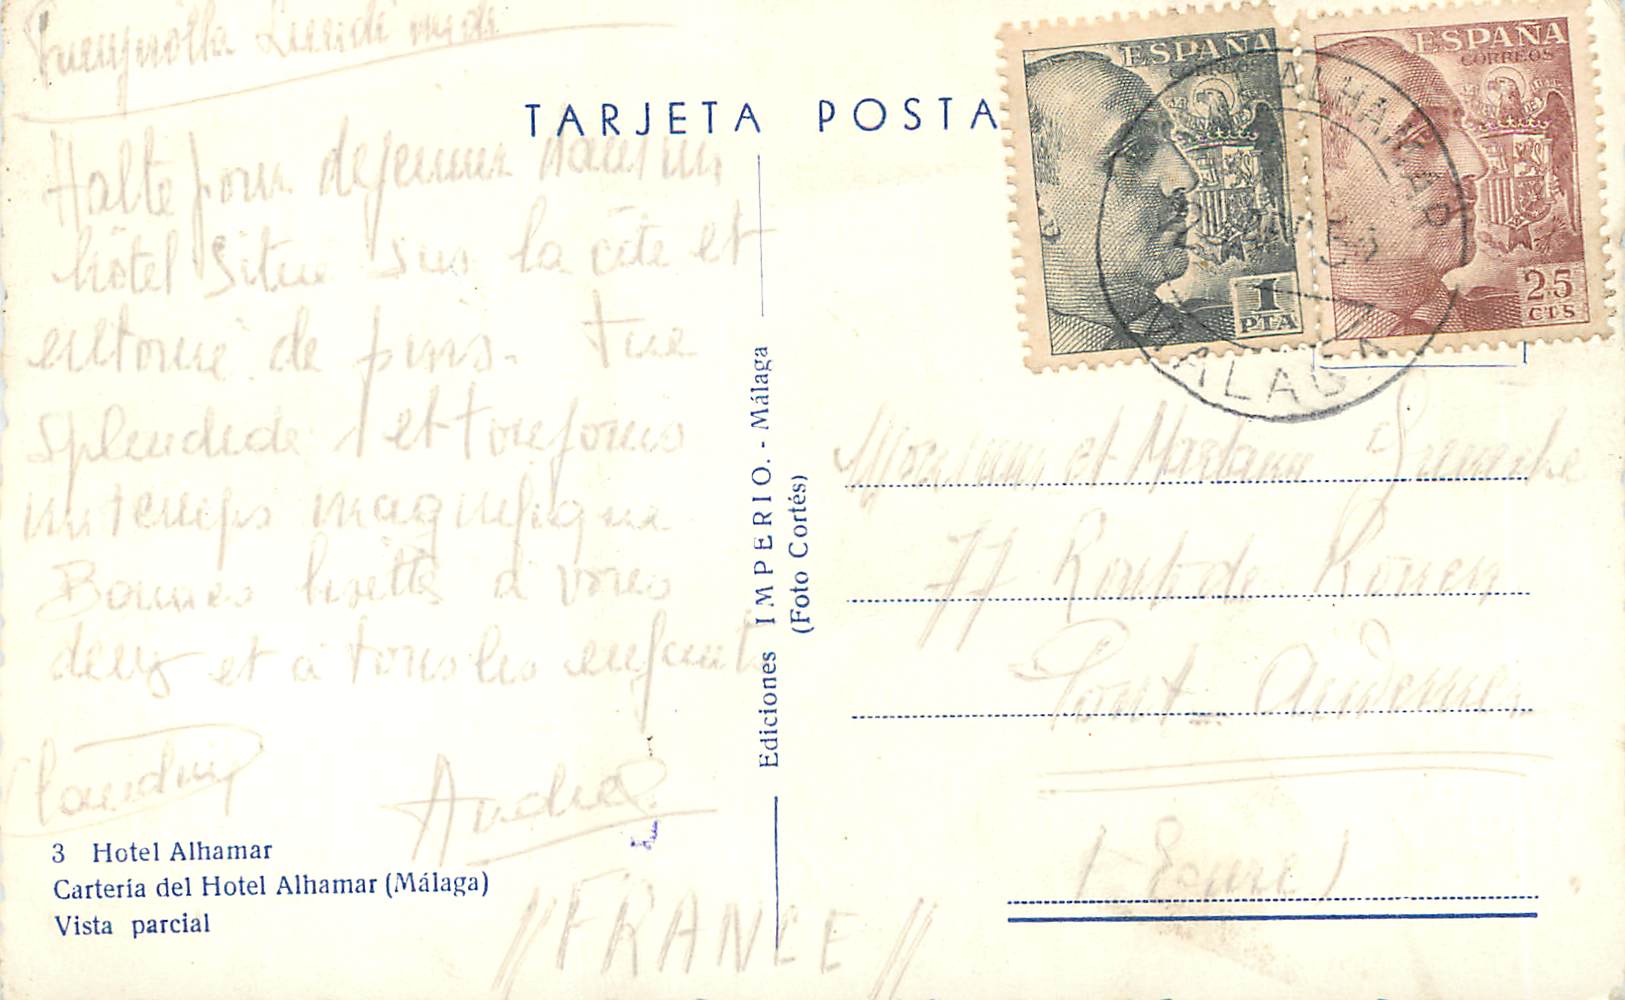 TARJETA POSTA
ESPAÑA
CORREOS
1
PTA
ESPAÑA
CORREOS
25
CTS
ALHAMAR
MALAGA
Halte pour dejeuner dans un
hôtel situé sur la côte et
entouré de pins. Vue
splendide et toujours
un temps magnifique
Bonnes bisettes à vous
deux et à tous les enfants
André
Ediciones IMPERIO. - Málaga
(Foto Cortés)
Monsieur et Madame
77 Route de Rouen
Pont-Audemer
(Eure)
//FRANCE//
3 Hotel Alhamar
Cartería del Hotel Alhamar (Málaga)
Vista parcial